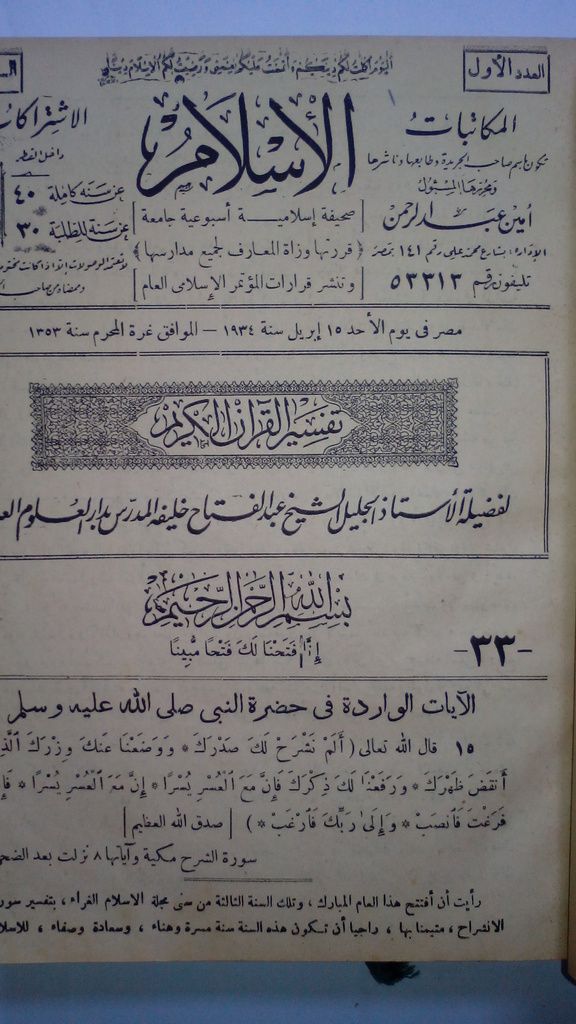 اليوم أكملت لكم دينكم وأتممت عليكم نعمتي ورضيت لكم الإسلام دينا
العدد الأول
المكاتبات
تكون باسم صاحب الجريدة وطابعها وناشرها
ومحررها المسئول
أمين عبد الرحمن
الإدارة: بشارع محمد علي رقم ١٤١ بمصر
تليفون رقم ٥٣٣١٣
الإسلام
صحيفة إسلامية أسبوعية جامعة
قررتها وزاة المعارف لجميع مدارسها
وتنشر قرارات المؤتمر الإسلامى العام
الاشتراكات
داخل القطر
عن سنة كاملة ٤٠
عن سنة للطلبة ٣٠
مصر فى يوم الأحد ١٥ إبريل سنة ١٩٣٤ — الموافق غرة المحرم سنة ١٣٥٣
تفسير القرآن الكريم
لفضيلة الأستاذ الجليل الشيخ عبد الفتاح خليفه المدرس بدار العلوم
بسم الله الرحمن الرحيم
إِنَّا فَتَحْنَا لَكَ فَتْحًا مُّبِينًا
-٣٣-
الآيات الواردة فى حضرة النبى صلى الله عليه وسلم
١٥ قال الله تعالى ( أَلَمْ نَشْرَحْ لَكَ صَدْرَكَ * وَوَضَعْنَا عَنكَ وِزْرَكَ
أَنقَضَ ظَهْرَكَ * وَرَفَعْنَا لَكَ ذِكْرَكَ فَإِنَّ مَعَ ٱلْعُسْرِ يُسْرًا * إِنَّ مَعَ ٱلْعُسْرِ يُسْرًا *
فَرَغْتَ فَٱنصَبْ * وَإِلَىٰ رَبِّكَ فَٱرْغَبْ * ) | صدق الله العظيم |
سورة الشرح مكية وآياتها ٨ نزلت بعد
رأيت أن أفتتح هذا العام المبارك ، وتلك السنة الثالثة من سنى مجلة الاسلام الغراء ، بتفسير
الانشراح ، متيمنا بها ، راجيا أن تكون هذه السنة سنة مسرة وهناء ، وسعادة وصفاء ،